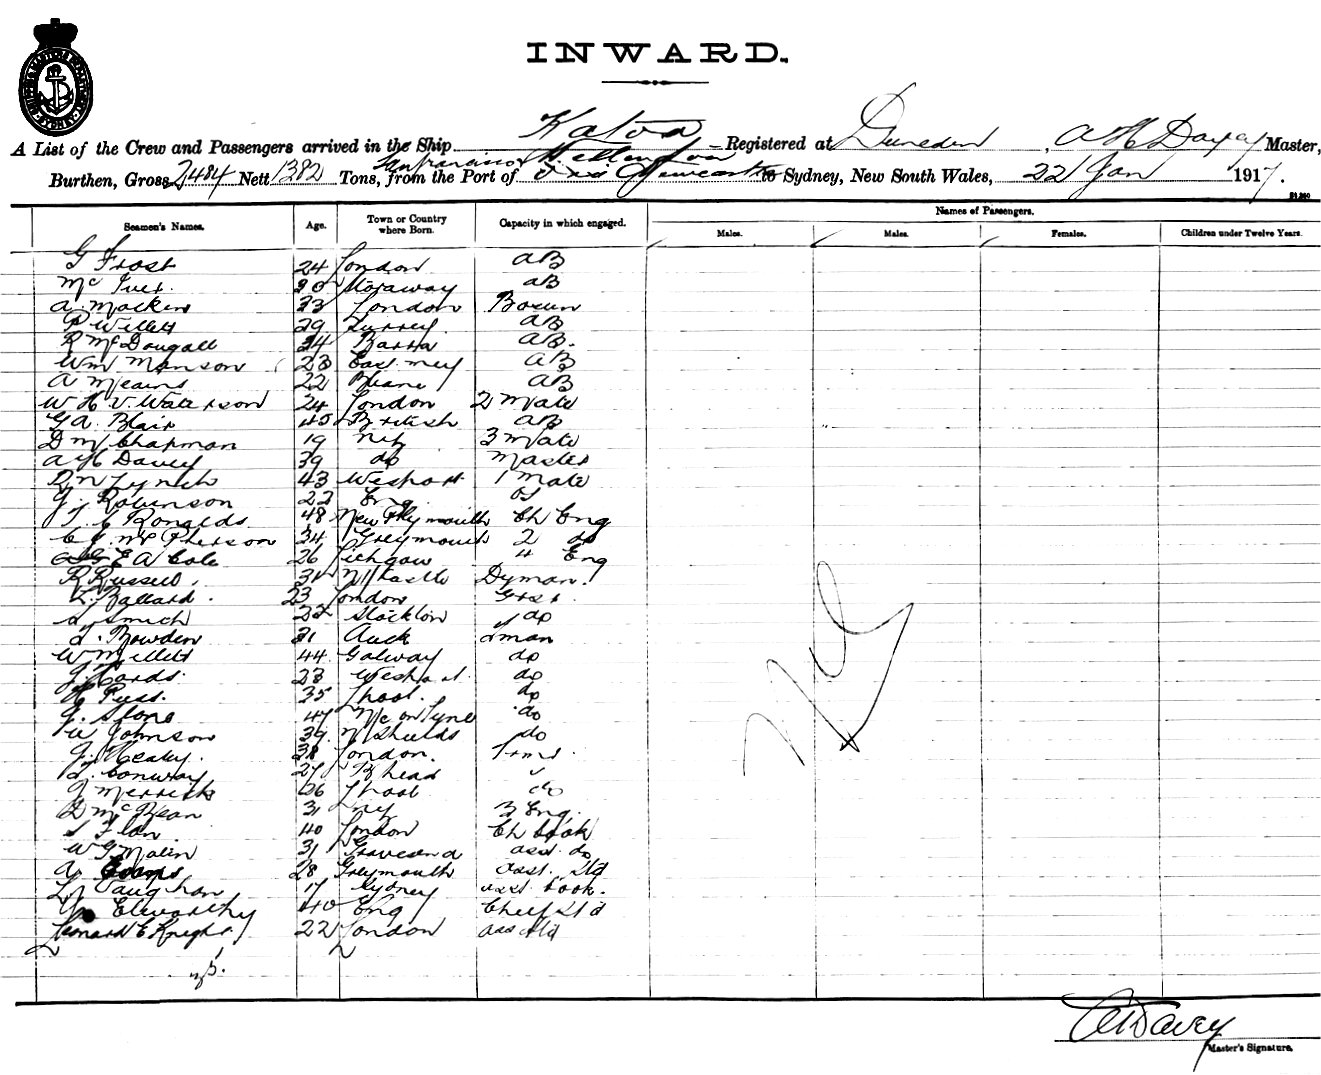 INWARD.
A List of the Crew and Passengers arrived in the Ship Katoa Registered at Dunedin, A H Davey Master,
Burthen, Gross 2484 Nett 1382 Tons, from the Port of San Francisco Wellington via Newcastle to Sydney, New South Wales, 22 Jan 1917.
Seamen's Names. Age. Town or Country where Born. Capacity in which engaged. Names of Passengers.
Males. Males. Females. Children under Twelve Years.
G Frost 24 London AB
Mc Iver 20 Storaway AB
A. Macken 23 London Bosun
P Willett 29 Surrey AB
R McDougall 24 Barra AB.
Wm Manson 23 East AB
A Mearns 22 AB
W H V. Waterson 24 London 2 Mate
G A. Blair 40 British AB
D M Chapman 19 NZ 3 Mate
A H Davey 39 do Master
R N Lynch 43 Westport 1 Mate
J. Robinson 22 Eng. OS
Ronalds 48 New Plymouth Ch Eng
C J McPherson 34 Greymouth 2 do
E A Cole 26 Lithgow 4 Eng
R Russell. 31 N/Castle Dyman.
Ballard. 23 London Grsr.
Smith 22 Stockton do
Bowden 21 Auck fman
W Millett 44 Galway do
J. Cards. 23 Westport. do
35 L'pool. do
G. Stone 47 N/C on Tyne do
W Johnson 39 N Shields do
J. Healey. 38 London. Trms.
Conway 27 B'head "
J Merrick 26 L'pool do
D McBean 31 NZ 3 Eng.
40 London Ch Cook
W G Malin 31 Gravesend asst do
A 28 Greymouth asst. Std
Vaughan 17 Sydney asst Cook.
Elworthy 40 Eng Chief Std
Leonard E Knight 22 London ass Std
35.
Nil
A H Davey
Master's Signature.